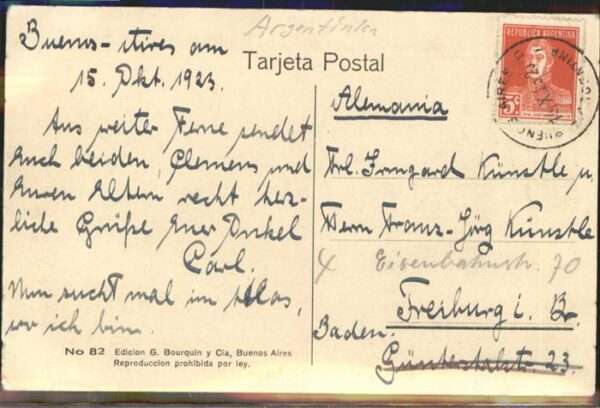 Argentinien
Buenos-Aires am
15. Okt. 1923.
Aus weiter Ferne sendet
Euch beiden, Clemens und
Euren Eltern recht herz-
liche Grüße Euer Onkel
Carl.
Nun sucht mal im Atlas,
wo ich bin.
No 82 Edicion G. Bourquin y Cía, Buenos Aires
Reproduccion prohibida por ley.
Tarjeta Postal
REPUBLICA ARGENTINA
5
BUENOS AIRES
Alemania
Frl. Irmgard Künstle u.
Herrn Franz-Jörg Künstle
Eisenbahnstr. 70
Freiburg i. B.
Baden.
23